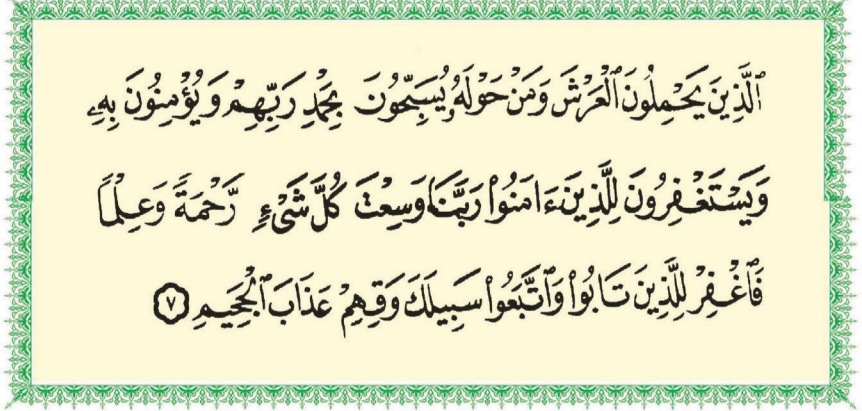 ٱلَّذِينَ يَحْمِلُونَ ٱلْعَرْشَ وَمَنْ حَوْلَهُۥ يُسَبِّحُونَ بِحَمْدِ رَبِّهِمْ وَيُؤْمِنُونَ بِهِۦ
وَيَسْتَغْفِرُونَ لِلَّذِينَ ءَامَنُوا۟ رَبَّنَا وَسِعْتَ كُلَّ شَىْءٍ رَّحْمَةً وَعِلْمًا
فَٱغْفِرْ لِلَّذِينَ تَابُوا۟ وَٱتَّبَعُوا۟ سَبِيلَكَ وَقِهِمْ عَذَابَ ٱلْجَحِيمِ ٧